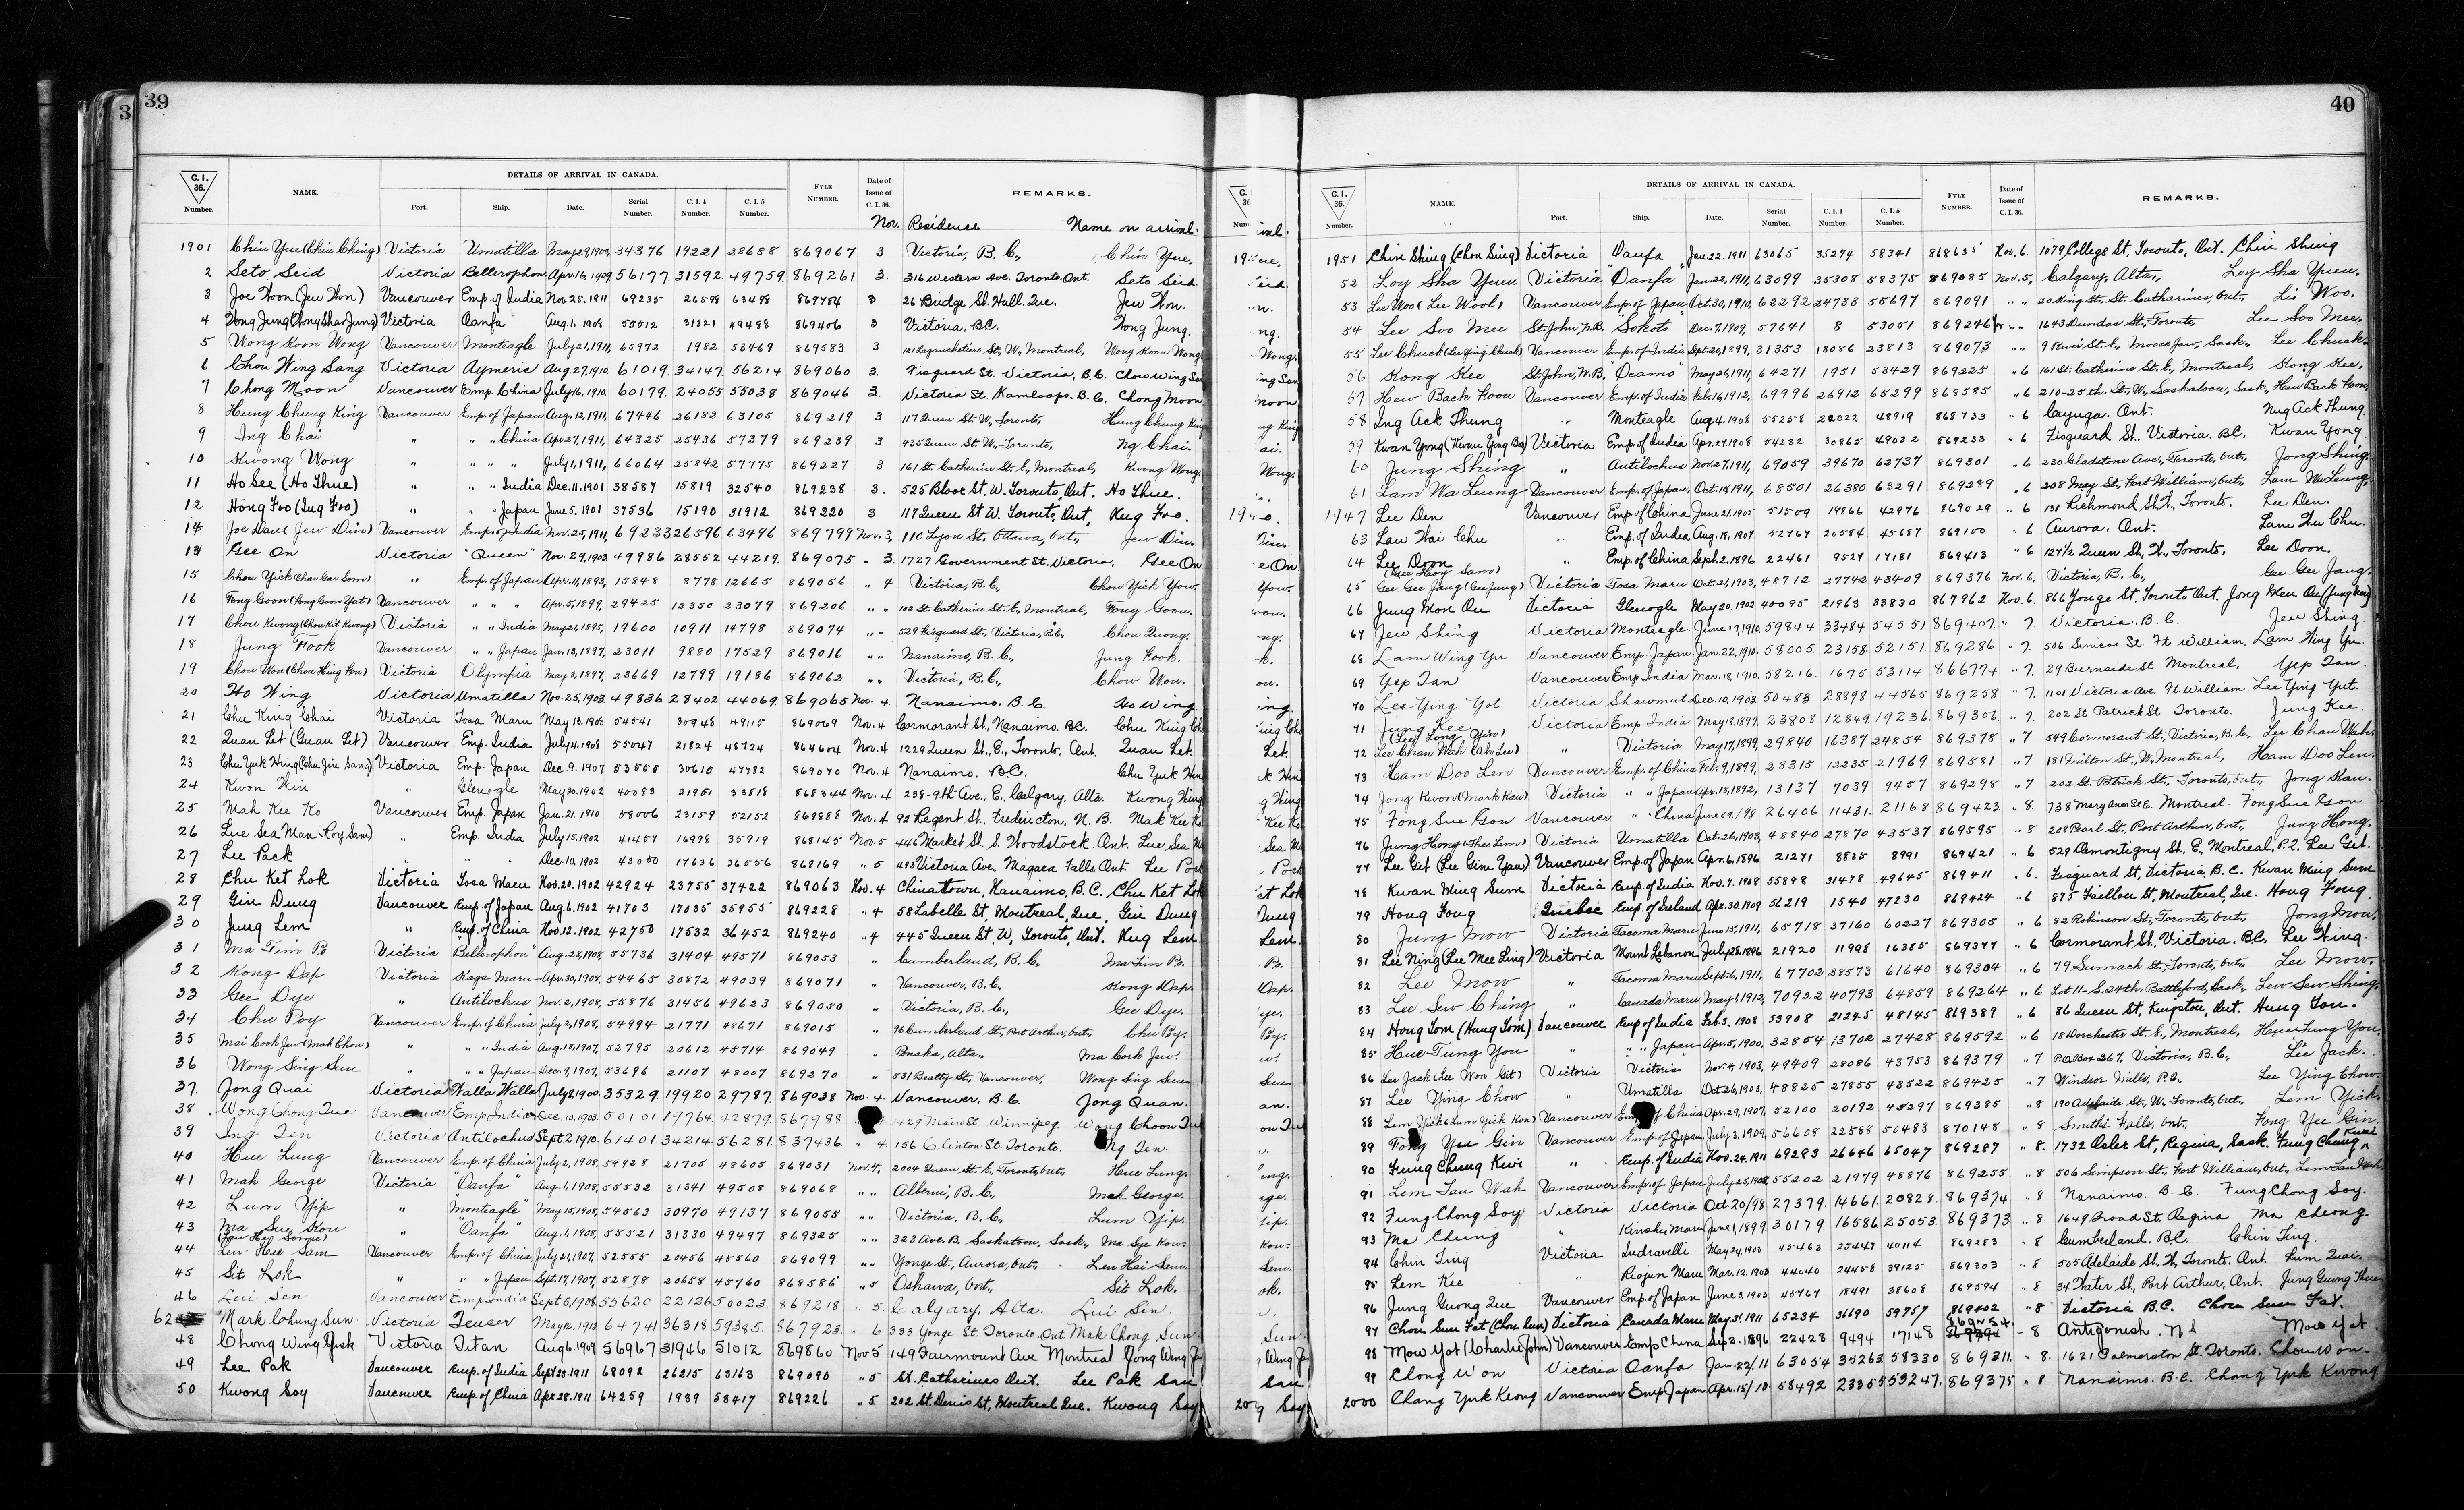 3
39
C. I. 36. Number. NAME. DETAILS OF ARRIVAL IN CANADA. Port. Ship. Date. Serial Number. C. I. 4 Number. C. I. 5 Number. FYLE NUMBER. Date of Issue of C. I. 36. REMARKS.
Nov. Residence Name on arrival.
1901 Chin Yue (Chin Ching) Victoria Umatilla 34376 19221 28688 869067 3 Victoria, B.C., Chin Yue.
2 Seto Seid Victoria Bellerophon Apr. 16, 1909 56177 31592 49759 869261 3. 316 Western Ave. Toronto Ont. Seto Seid
3 Joe Hoon (Jew Hon) Vancouver Emp. of India Nov. 25. 1911 69235 26598 63498 3 26 Bridge St. Hull. Que. Jew Hon.
4 Victoria Oanfa Aug. 1. 1908 55512 31321 49488 869406 3 Victoria, B.C. Hong Jung.
5 Wong Koon Wong Vancouver Monteagle July 21, 1911 65972 1982 53469 869583 3 121 Lagauchetiere St., W., Montreal, Wong Koon Wong
6 Chow Wing Sang Victoria Aymeric Aug. 27, 1910 61019 34147 56214 869060 3. Fisguard St. Victoria, B.C. Chow Wing San
7 Chong Moon Vancouver Emp. China July 16, 1910 60179 24055 55038 869046 3. Victoria St. Kamloops. B.C. Chong Moon
8 Hung Chung King Vancouver Emp. of Japan Aug. 12, 1911 67446 26182 63105 869219 3 117 Queen St. W., Toronto, Hung Chung King
9 Ing Chai " " " China Apr. 27, 1911, 64325 25436 57379 869239 3 435 Queen St. W., Toronto, Ng Chai.
10 Kwong Wong " " " " July 1, 1911, 66064 25842 57775 869227 3 161 St. Catherine St. E., Montreal, Kwong Wong
11 Ho See (Ho Shue) " " " India Dec. 11. 1901 38587 15819 32540 869238 3. 525 Bloor St. W. Toronto, Ont. Ho Shue.
12 Hong Foo (Ing Foo) " " " Japan June 5. 1901 37536 15190 31912 869220 3 117 Queen St W. Toronto, Ont. Hug Foo.
14 Joe Dan (Jew Din) Vancouver Emp. of India Nov. 25, 1911, 69233 26596 63496 869799 Nov. 3, 110 Lyon St., Ottawa, Ont., Jew Din.
13 Gee On Victoria "Queen" Nov. 29, 1903 49986 28552 44219 869075 " 3. 1727 Government St. Victoria. Gee On
15 Chow Yick Emp. of Japan 1893, 15848 8778 12665 869056 " 4 Victoria, B.C., Chow Yick Yow.
16 Fong Goon (Fong Goon Yut) Vancouver " " " Apr. 5, 1899, 29425 12350 23079 869206 " " 102 St. Catherine St. E., Montreal, Fong Goon.
17 Chow Kwong (Chow Kit Kwong) Victoria " " India May 21, 1895, 19600 10911 14798 869074 " " 529 Fisguard St., Victoria, B.C., Chow Quong.
18 Jung Fook Vancouver " " Japan Jan. 13, 1897, 23011 9880 17529 869016 " " Nanaimo, B.C., Jung Fook.
19 Chow Won Victoria Olympia May 8, 1897, 23669 12799 19186 869062 " " Victoria, B.C., Chow Won.
20 Ho Wing Victoria Umatilla Nov. 25, 1903 49836 28402 44069 869065 Nov. 4. Nanaimo. B.C. Ho Wing
21 Chu King Chai Victoria Tosa Maru May 13. 1908 54541 30948 49115 869069 Nov. 4 Cormorant St., Nanaimo. B.C. Chu King Ch
22 Quan Let (Guan Let) Vancouver Emp. India July 4, 1908 55047 21824 48724 864604 Nov. 4 1229 Queen St., E., Toronto. Ont. Quan Let.
23 Victoria Emp. Japan Dec. 9. 1907 53555 30615 47782 869070 Nov. 4 Nanaimo. B.C. Chu Yuk Hin
24 Kwon Hin " Glenogle May 20. 1902 40083 21951 33818 868344 Nov. 4 238-9th Ave., E., Calgary, Alta. Kwong Hing
25 Mah Kee Ko Vancouver Emp. Japan Jan. 21. 1910 58006 23159 52152 869888 Nov. 4 92 Regent St., Fredericton, N.B. Mah Kee Ko
26 Lue Sea Man " Emp. India July 15. 1902 41457 16998 35919 868145 Nov. 5 446 Market St. S. Woodstock. Ont. Lue Sea M
27 Lee Pack " " Dec. 10. 1902 43050 17636 36556 868169 " 5 493 Victoria Ave., Niagara Falls Ont Lee Pack
28 Chu Ket Lok Victoria Tosa Maru Nov. 20. 1902 42924 23755 37422 869063 Nov. 4 Chinatown, Nanaimo, B.C. Chu Ket Lok
29 Gin Dung Vancouver Emp. of Japan Aug. 6. 1902 41703 17035 35955 869228 " 4 58 Labelle St, Montreal, Que. Gin Dung
30 Jung Lem " Emp. of China Nov. 12. 1902 42750 17532 36452 869240 " 4 445 Queen St. W, Toronto, Ont. Hug Lem
31 Ma Tim Po Victoria "Bellerophon" Aug. 28, 1908, 55736 31404 49571 869053 " Cumberland, B.C., Ma Tim Po.
32 Kong Dap Victoria Kaga Maru Apr. 30, 1908, 54465 30872 49039 869071 " Vancouver, B.C., Kong Dap.
33 Gee Dye " Antilochus Nov. 2, 1908, 55876 31456 49623 869050 " Victoria, B.C., Gee Dye.
34 Chu Poy Vancouver Emp. of China July 2, 1908, 54994 21771 48671 869015 " 96 Cumberland St., Port Arthur, Ont., Chu Poy.
35 " " " India Aug. 18, 1907, 52795 20612 45714 869049 " Ma Cork Jew.
36 Wong Sing Sun " " " Japan Dec. 9, 1907, 53696 21107 48007 869270 " 531 Beatty St., Vancouver, Wong Sing Sun
37. Jong Quai Victoria Walla Walla July 8, 1900 35329 19920 29787 869038 Nov. 4. Vancouver. B.C. Jong Quan.
38 Wong Chong Tue Vancouver Emp India Dec. 10, 1903 50101 19764 42879 867988 429 Main St Winnipeg Wong Choon Tu
39 Ing Ten Victoria Antilochus Sept. 2, 1910 61401 34214 56281 837436 " 4 156 Clinton St. Toronto. Ng Ten.
40 Hue Lung Vancouver Emp. of China July 2, 1908, 54928 21705 48605 869031 Nov. 4, 2004 Queen St. E., Toronto, Ont., Hue Lung.
41 Mah George Victoria "Oanfa" Aug. 1, 1908, 55532 31341 49508 869068 " " Alberni, B.C., Mah George.
42 Lum Yip " Monteagle May 15, 1908, 54563 30970 49137 869055 " " Victoria, B.C., Lum Yip.
43 Ma Sue Kow " "Oanfa" Aug. 1, 1908, 55521 31330 49497 869325 " " 323 Ave. B. Saskatoon, Sask., Ma Sye Kow.
44 Lew Hee Sam Vancouver Emp. of China July 21, 1907, 52555 20456 45560 869099 " " Yonge St., Aurora, Ont., Len Hai Sem.
45 Sit Lok " " " Japan Sept. 17, 1907, 52878 20658 45760 868586 " 5 Oshawa, Ont., Sit Lok.
46 Lui Sen Vancouver Emp India Sept 5, 1908 55620 22126 50023 869218 " 5. Calgary, Alta. Lui Sen.
62 Mark Chung Sun Victoria Teucer 64741 36318 59385 867923 " 6 333 Yonge St. Toronto. Ont Mak Chong Sun
48 Chong Wing Yick Victoria Titan Aug 6. 1909 56967 31946 51012 869860 Nov 5 149 Fairmount Ave Montreal
49 Lee Pak Vancouver Emp. of India Sept 23. 1911 68092 26215 63163 869090 " 5 St. Catharines Ont. Lee Pak San
50 Kwong Soy Vancouver Emp. of China Apr 28. 1911 64259 1939 58417 869226 " 5 202 St. Denis St, Montreal Que. Kwong Soy
40
C. I. 36. Number. NAME. DETAILS OF ARRIVAL IN CANADA. Port. Ship. Date. Serial Number. C. I. 4 Number. C. I. 5 Number. FYLE NUMBER. Date of Issue of C. I. 36. REMARKS.
1951 Chin Shing (Chon Sing) Victoria Oanfa Jan. 22. 1911 63065 35274 58341 868635 Nov. 6. 1079 College St, Toronto, Ont. Chin Shing
52 Loy Sha Yuen Victoria "Oanfa" Jan. 22, 1911, 63099 35308 58375 869085 Nov. 5, Calgary, Alta., Loy Sha Yuen.
53 Lee Woo (Lee Wool) Vancouver Emp. of Japan Oct. 30, 1910, 62292 24733 55697 869091 " " 20 King St., St. Catharines, Ont., Lee Woo.
54 Lee Soo Mee St. John, N.B. Sokoto Dec. 7, 1909, 57641 8 53051 869246 " " 1643 Dundas St., Toronto, Lee Soo Mee.
55 Lee Chuck (Lee Ying Chuck) Vancouver Emp. of India Sept. 20, 1899, 31353 13086 23813 869073 " " 9 River St. E., Moose Jaw, Sask., Lee Chuck.
56 Kong Kee St. John, N.B. Ocamo May 26, 1911, 64271 1951 53429 869225 " 6 161 St. Catherine St. E., Montreal, Kong Kee.
57 Hew Back Hoon Vancouver Emp. of India Feb. 16, 1912, 69996 26912 65299 868585 " 6 210-25th. St., W., Saskatoon, Sask., Hew Back Hoon,
58 Ing Ack Thung " Monteagle Aug. 4, 1908 55258 22022 48919 868733 " 6 Cayuga. Ont. Nug Ack Thung.
59 Kwan Yong Victoria Emp. of India Apr. 27. 1908 54232 30865 49032 869233 " 6 Fisguard St., Victoria. B.C. Kwan Yong.
60 Jung Shing " Antilochus Nov. 27, 1911, 69059 39670 62737 869301 " 6 230 Gladstone Ave., Toronto, Ont., Jong Shing.
61 Lam Wa Leung Vancouver Emp. of Japan, Oct. 18, 1911, 68501 26380 63291 869289 " 6 208 May St., Fort William, Ont., Lam Wa Leung.
1947 Lee Den Vancouver Emp. of China June 21, 1905 51509 19866 42976 869029 " 6 131 Richmond St. W., Toronto. Lee Den.
63 Lau Wai Chu " Emp. of India Aug. 18, 1907 52767 20584 45687 869100 " 6 Aurora. Ont.
64 Lee Doon " Emp. of China Sept. 2. 1896 22461 9527 17181 869413 " 6 127½ Queen St., W., Toronto. Lee Doon.
65 Gee Gee Jang Victoria Tosa Maru Oct. 21, 1903, 48712 27742 43409 869376 Nov. 6, Victoria, B.C., Gee Gee Jang.
66 Jung Mon Ou Victoria Glenogle May 20. 1902 40095 21963 33830 867962 Nov. 6. 866 Yonge St. Toronto Ont.
67 Jew Shing Victoria Monteagle June 17, 1910 59844 33484 54551 869407 " 7. Victoria. B.C. Jew Shing.
68 Lam Wing Yu Vancouver Emp. Japan Jan. 22, 1910 58005 23158 52151 869286 " 7. 506 Simcoe St. Ft William. Lam Wing Yu
69 Yep Tan Vancouver Emp India Mar. 18, 1910 58216 1675 53114 866774 " 7. 29 Burnside St. Montreal, Yep Tan.
70 Lee Ying Yot Victoria Shawmut Dec. 10, 1903 50483 28898 44565 869258 " 7. 1101 Victoria Ave. Ft William. Lee Ying Yut.
71 Jung Kee Victoria Emp India May 18, 1897, 23808 12849 19236 869306 " 7. 202 St. Patrick St Toronto. Jung Kee.
72 Lee Chan Wah " Victoria May 17, 1899, 29840 16387 24854 869378 " 7 549 Cormorant St., Victoria, B.C., Lee Chan Wah.
73 Ham Doo Len Vancouver Emp. of China Feb. 9, 1899, 28315 12235 21969 869581 " 7 181 Milton St., W., Montreal, Ham Doo Len.
74 Jong Kwon (Mark Kaw) Victoria " " Japan Apr. 18, 1892, 13137 7039 9457 869298 " 7 202 St. Patrick St., Toronto, Ont., Jong Kan.
75 Fong Sue Gson Vancouver " China June 29, 1898 26406 11431 21168 869423 " 8. 738 Mary Anne St E. Montreal. Fong Sue Gson
76 Jung Hong Victoria Umatilla Oct. 26, 1903, 48840 27870 43537 869595 " 8 208 Pearl St., Port Arthur, Ont., Jung Hong.
77 Lee Git (Lee Gim Yau) Vancouver Emp. of Japan Apr. 6, 1896 21271 8835 8991 869421 " 6 529 Demontigny St., E., Montreal, P.Q. Lee Git.
78 Kwan Ming Sum Victoria Emp. of India Nov. 7. 1908 55898 31478 49645 869411 " 6. Fisguard St, Victoria, B.C. Kwan Ming Sum
79 Hong Fong Quebec Emp. of Ireland Apr. 30, 1909 56219 1540 47230 869424 " 6 875 Faillon St, Montreal, Que. Hong Fong.
80 Jung Mow Victoria Tacoma Maru June 15, 1911, 65718 37160 60227 869305 " 6 82 Robinson St., Toronto, Ont., Jong Mow.
81 Lee Ning (Lee Mee Ling) Victoria Mount Lebanon July 28. 1896 21920 11998 16385 869377 " 6 Cormorant St, Victoria. B.C. Lee Ning.
82 Lee Mow " Tacoma Maru Sept. 6, 1911, 67702 38573 61640 869304 " 6 79 Sumach St., Toronto, Ont., Lee Mow.
83 Lee Sew Ching " Canada Maru May 1, 1912, 70922 40793 64859 869264 " 6 Lot 11-S. 24th. Battleford, Sask., Lew Sew Shing.
84 Hong Tom (Hung Tom) Vancouver Emp of India Feb. 3. 1908 53908 21245 48145 869389 " 6 86 Queen St, Kingston, Ont. Hung Tom.
85 Hue Tung You " " " Japan Apr. 5, 1900, 32854 13702 27428 869592 " 6 18 Dorchester St. E., Montreal, Hew Tung You.
86 Lee Jack (Lee Won Git) Victoria Victoria Nov. 4, 1903, 49409 28086 43753 869379 " 7 P.O. Box 267, Victoria, B.C., Lee Jack.
87 Lee Ying Chow " Umatilla Oct. 26, 1903, 48825 27855 43522 869425 " 7 Windsor Mills, P.Q., Lee Ying Chow.
88 Lem Yick (Lum Yick Kon) Vancouver Emp. of China Apr. 29, 1907, 52100 20192 45297 869385 " 8 190 Adelaide St., W., Toronto, Ont., Lem Yick.
89 Fong Yee Gin Vancouver Emp. of Japan, July 3, 1909, 56608 22588 50483 870148 " 8 Smiths Falls, Ont., Fong Yee Gin.
90 Fung Chung Kwi " Emp. of India Nov. 24. 1911 69293 26646 65047 869287 " 8. 1732 Osler St, Regina, Sask. Fung Chung Kwai
91 Lem Tau Wah Vancouver Emp. of Japan July 25, 1908 55202 21979 48876 869255 " 8 506 Simpson St., Fort William, Ont., Lem Tau Wah.
92 Fung Chong Soy Victoria Victoria Oct 20/98 27379 14661 20828 869374 " 8 Nanaimo. B.C. Fung Chong Soy.
93 Ma Chung " Kinshu Maru June 1, 1899 30179 16586 25053 869373 " 8 1649 Broad St. Regina Ma Cheong
94 Chin Ting Victoria Indravelli May 24, 1903 45463 25447 40114 869283 " 8 Cumberland. B.C. Chin Ting.
95 Lem Kee " Riojun Maru Mar. 12. 1903 44040 24458 39125 869303 " 8 505 Adelaide St., W., Toronto. Ont. Lum Quai.
96 Jung Guong Que Vancouver Emp. of Japan June 3, 1903 45767 18491 38608 869594 " 8 34 Water St., Port Arthur, Ont. Jung Guong Hue
97 Chow Sun Fat (Chow Sun) Victoria Canada Maru May 31, 1911 65234 36690 59757 869402 " 8 Victoria B.C. Chow Sun Fat.
98 Mow Yot (Charlie John) Vancouver Emp China Sep 2. 1896 22428 9494 17148 " 8 Antigonish. N S Mow Yot
99 Chong Won Victoria Oanfa Jan. 22/11 63054 35263 58330 869311 " 8. 1621 Palmerston St. Toronto. Chou Won
2000 Chang Yuk Kwong Vancouver Emp Japan Apr. 15/10 58492 23355 53247 869375 " 8 Nanaimo. B.C. Chang Yuk Kwong